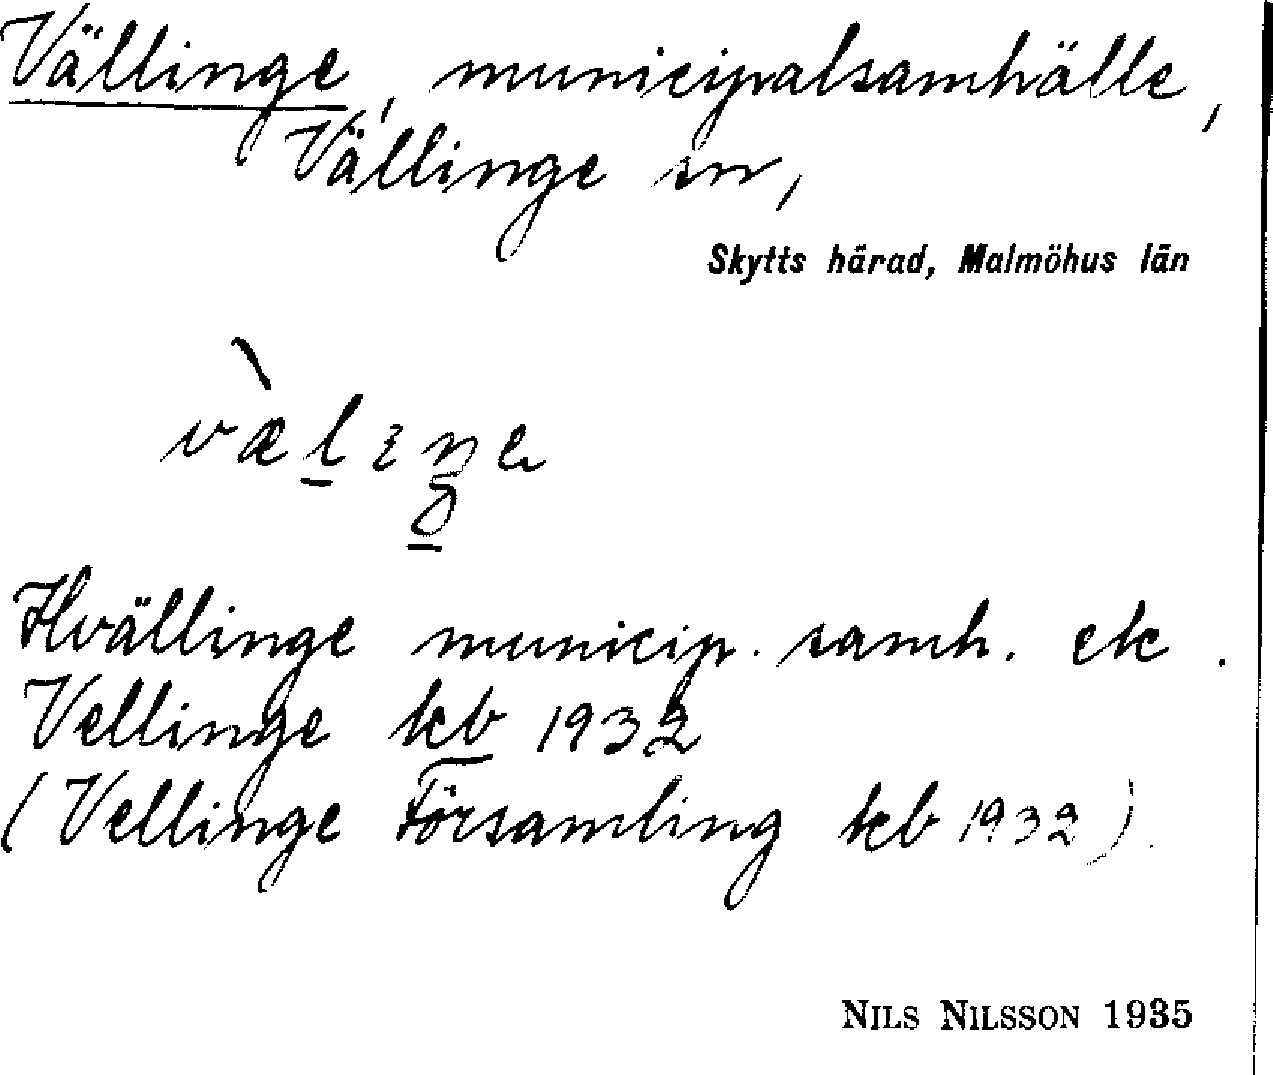 Vällinge, municipalsamhälle,
Vällinge sn,
Skytts härad, Malmöhus län
Hvällinge municip. samh. ek.
Vellinge kb 1932
(Vellinge Församling kb 1932).
NILS NILSSON 1935